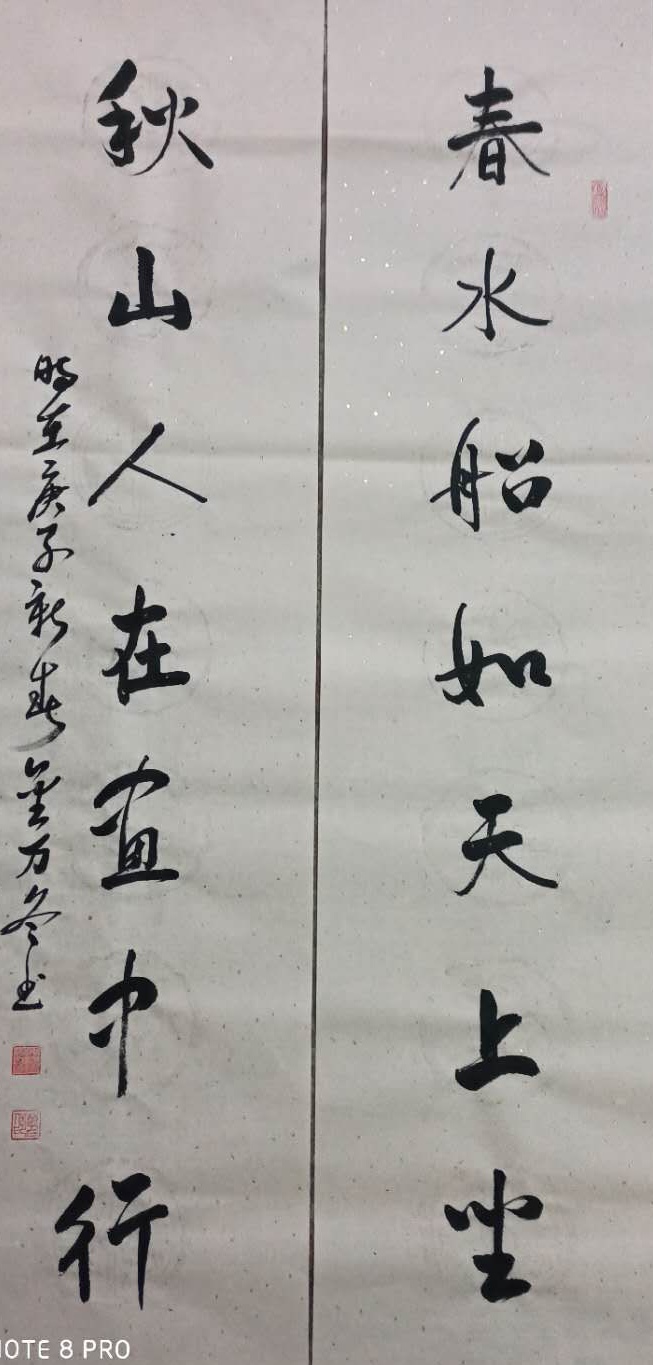 春水船如天上坐
秋山人在画中行
时在庚子新春金万冬书
NOTE 8 PRO